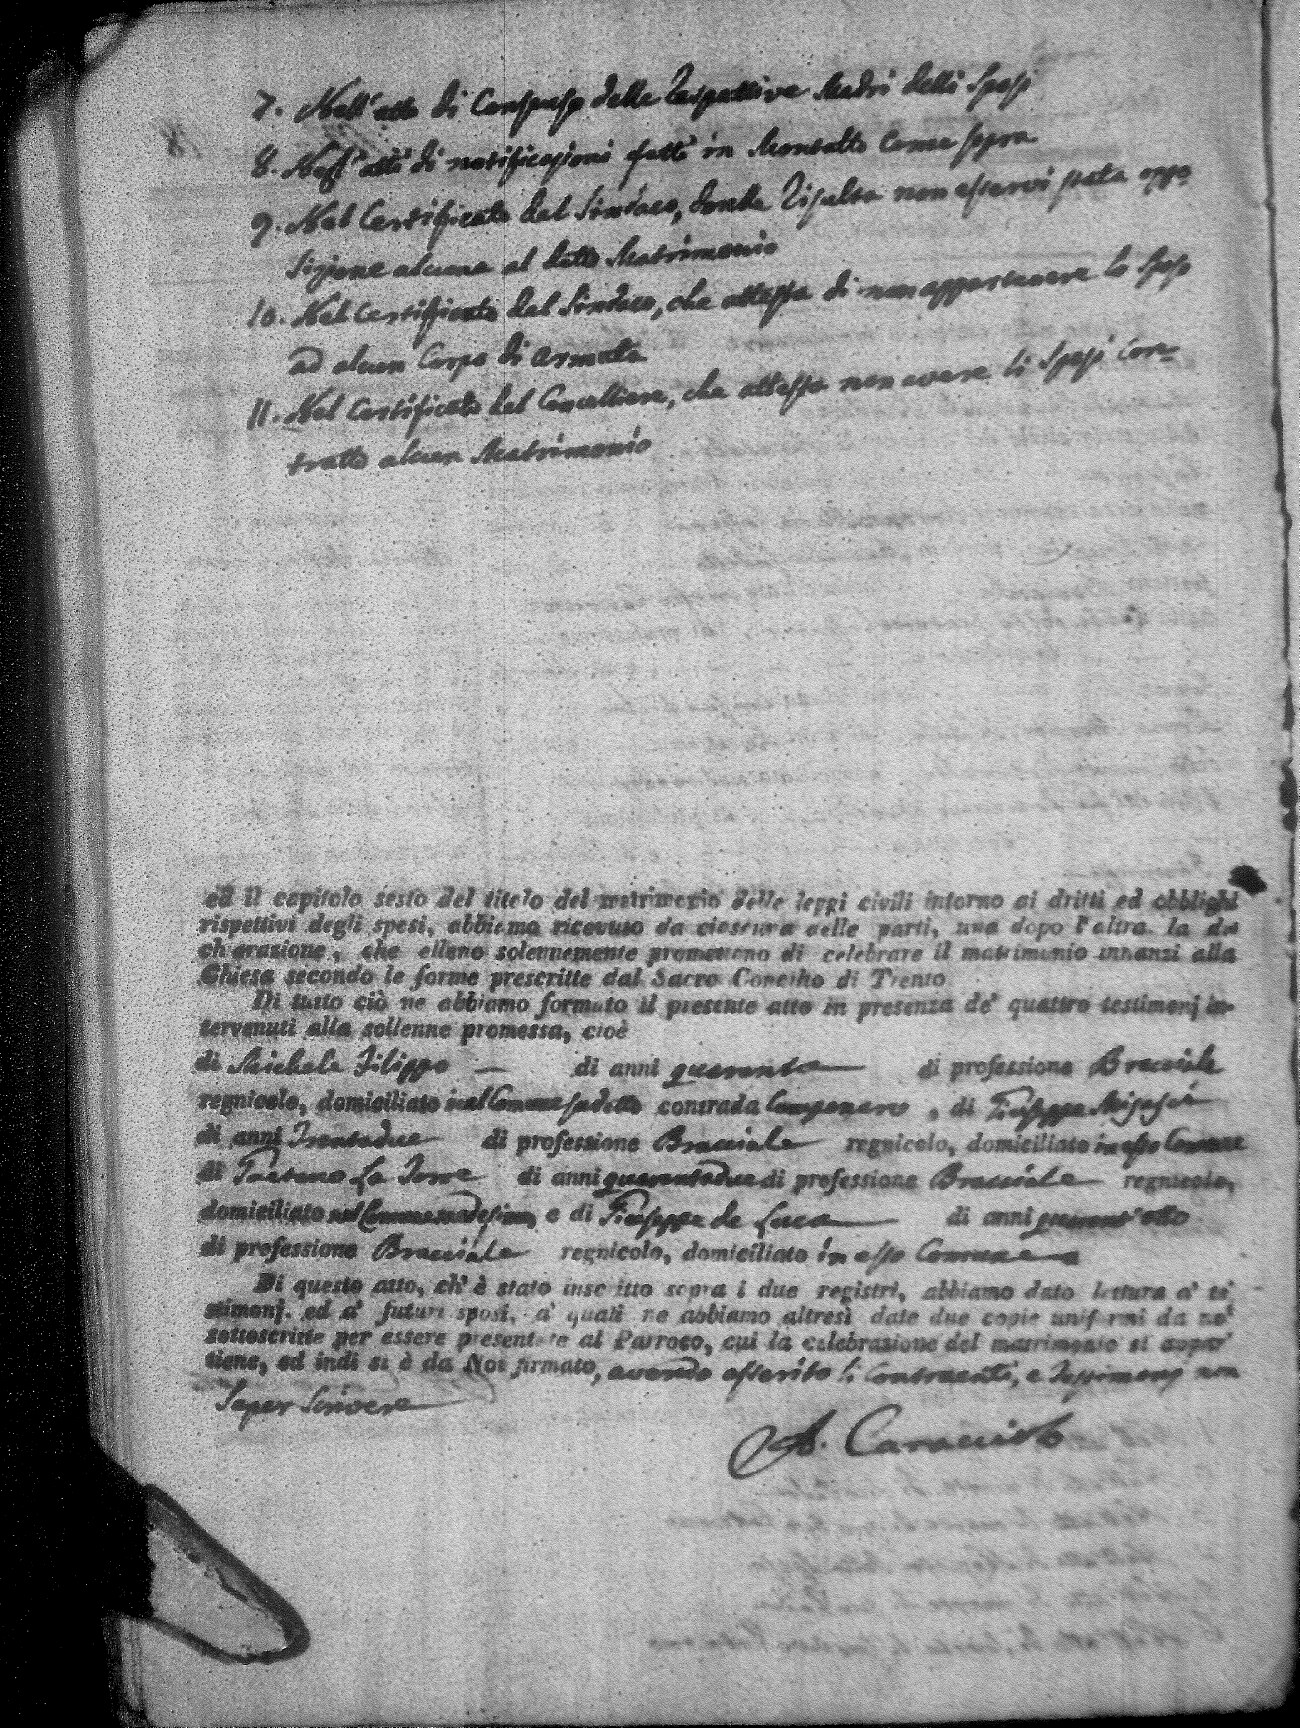 7. Nell'atto di Consenso delle rispettive Madri delli Sposi
8. Negl'atti di notificazioni fatte in Montalto come sopra
9. Nel Certificato del Sindaco, donde risulta non esservi stata oppo
sizione alcuna al detto Matrimonio
10. Nel Certificato del Sindaco, che attesta di non appartenere lo sposo
ad alcun Corpo di Armata
11. Nel Certificato del Cancelliere, che attesta non avere li Sposi Con=
tratto alcun Matrimonio
ed il capitolo sesto del titolo del matrimonio delle leggi civili intorno ai dritti ed obblighi
rispettivi degli sposi, abbiamo ricevuto da ciascuna delle parti, una dopo l'altra, la di
chiarazione, che elleno solennemente promettono di celebrare il matrimonio innanzi alla
Chiesa secondo le forme prescritte dal Sacro Concilio di Trento
Di tutto ciò ne abbiamo formato il presente atto in presenza de' quattro testimonj in-
tervenuti alla sollenne promessa, cioè
di Michele Filippo — di anni quaranta di professione Bracciale
regnicolo, domiciliato nel Comune sudetto contrada , di Giuseppe
di anni Trentadue di professione Bracciale regnicolo, domiciliato in esso Comune
di Gaetano La Torre di anni quarantadue di professione Bracciale regnicolo,
domiciliato nel Comune medesimo, e di Giuseppe de Luca di anni quarant'otto
di professione Bracciale regnicolo, domiciliato in esso Comune
Di questo atto, ch'è stato inscritto sopra i due registri, abbiamo dato lettura a' te
stimonj, ed a' futuri sposi, a' quali ne abbiamo altresì date due copie uniformi da noi
sottoscritte per essere presentate al Parroco, cui la celebrazione del matrimonio si appar
tiene, ed indi si è da Noi firmato, avendo asserito li Contraenti, e Testimonj non
Saper Scrivere
A. Caracciolo